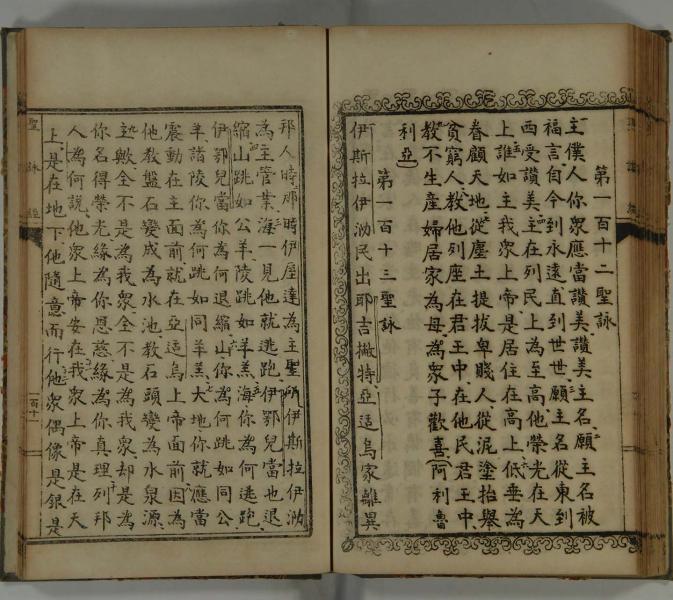 第一百十二聖詠
主僕人你眾應當讚美讚美主名願主名被
福言自今到永遠直到世世願主名從東到
西受讚美主在列民上為至高他榮光在天
上誰如主我眾上帝是居住在高上低垂為
眷顧天地從塵土提拔卑賤人從泥塗抬舉
貧窮人教他列座在君王中在他民君王中
教不生產婦居家為母為眾子歡喜阿利魯
利亞
第一百十三聖詠
伊斯拉伊泐民出耶吉撇特亞适烏家離異
邦人時那時伊屋達為主聖所伊斯拉伊泐
為主管業海一見他就逃跑伊鄂兒當也退
縮山跳如公羊陵跳如羊羔海你為何逃跑
伊鄂兒當你為何退縮山你為何跳如同公
羊諸陵你為何跳如同羊羔大地你就應當
震動在主面前就在亞适烏上帝面前因為
他教盤石變成為水池教石頭變為水泉源
主歟全不是為我眾全不是為我眾却是為
你名得榮光緣為你恩慈緣為你真理列邦
人為何說他眾上帝安在我眾上帝是在天
上是在地下他隨意而行他眾偶像是銀是
聖詠經
一百十一